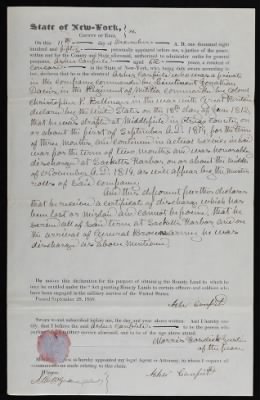 State of New-York, } ss.
County of Erie
On this 19th day of December A. D. one thousand eight
hundred and fifty personally appeared before me, a justice of the peace
within and for the County and State aforesaid, authorized to administer oaths for general
purposes, Asher Canfield aged 62 years, a resident of
Concord in the State of New-York, who being duly sworn according to
law, declares that he is the identical Asher Canfield who was a private
in the company commanded by Lieutenant
in the Regiment of Militia commanded by Colonel
Christopher P. Bellinger in the war with Great Britain
declared by the United States on the 18th day of June 1812,
that he was drafted at
on or about the first of September A.D. 1814 for the term
of three months, and continued in actual service in said
war for the term of two months and was honorably
discharged at Sacketts Harbor on or about the
of November A.D. 1814, as will appear by the muster
rolls of said company
And this deponent further declares
that he received a certificate of discharge which has
been lost or mislaid and cannot be found, that he
served all of said term at Sacketts Harbor and on
the arrival of General Brown's army he was
discharged as above mentioned
He makes this declaration for the purpose of obtaining the Bounty Land to which he
may be entitled under the "Act granting Bounty Lands to certain officers and soldiers who
have been engaged in the military service of the United States,"
Passed September 28, 1850.
Asher Canfield
Sworn to and subscribed before me, the day and year above written. And I hereby cer-
tify, that I believe the said Asher Canfield to be the person who
military service aforesaid, and to be of the age above stated.
Morris Fosdick Justice
of the peace
hereby appointed my legal Agent or Attorney, to whom I request all
communications be made relating to this claim.
Witness
Asher Canfield